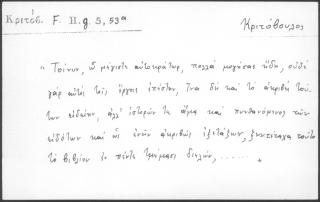 Κριτόβ. F. H. g. 5, 53ᵃ
Κριτόβουλος
"Τοίνυν, ὦ μέγιστε αὐτοκράτωρ, πολλὰ μογήσας ἤδη, οὐδὲ
γὰρ αὐτὸς τοῖς ἔργοις ἐπέστην, ἵνα δὴ καὶ τὸ ἀκριβὲς τού-
των εἰδείην, ἀλλ' ἱστορῶν τε ἅμα καὶ πυνθανόμενος τῶν
εἰδότων καὶ ὡς ἐνῆν ἀκριβῶς ἐξετάζων, ξυντέταχα τοῦτο
τὸ βιβλίον ἐν πέντε τμήμασι διελών, ......"